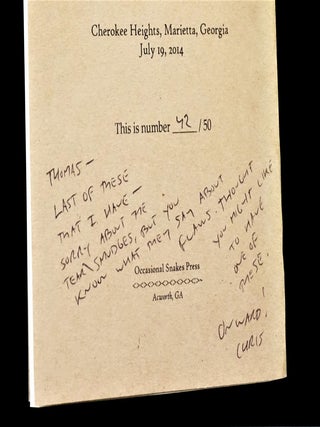 Cherokee Heights, Marietta, Georgia
July 19, 2014
This is number 42 / 50
THOMAS —
LAST OF THESE
THAT I HAVE —
SORRY ABOUT THE
TEAR/SMUDGES, BUT YOU
KNOW WHAT THEY SAY ABOUT
FLAWS. THOUGHT
YOU MIGHT LIKE
TO HAVE
ONE OF
THESE.
ONWARD!
CHRIS
Occasional Snakes Press
Acworth, GA